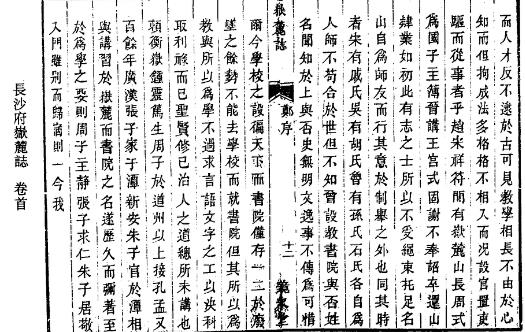 而人才反不逮於古可見教學相長不由於心
知而但拘成法多格格不相入而况設官置吏
驅而從事者乎趙朱祥符間有嶽麓山長周式
爲國子主薄詔講王宮式固謝不奉詔卒還山
肄業如初此有志之士所以不受繩束托足名
山自爲師友而行其意於制舉之外也同其時
者宋有戚氏吳有胡氏魯有孫氏石氏各自爲
人師不苟合於世但不知當設教書院與否姓
名聞知於上與否史無明文逸事不傳爲可惜
嶽麓誌
鄭序
十二
爾今學校之設徧天下而書院僅存一二於廢
墜之餘勢不能去學校而就書院但其所以爲
教與所以爲學不過求言語文字之工以決科
取利祿而已聖賢修已治人之道總所未講也
頓衡嶽鍾靈篤生周子於道州以上接孔孟又
百餘年廣漢張子家于潭新安朱子官於潭相
與講習於嶽麓而書院之名遠歷久而彌著至
於爲學之要則周子主靜張子求仁朱子居敬
入門雖别而歸宿則一今我
長沙府嶽麓誌 卷首